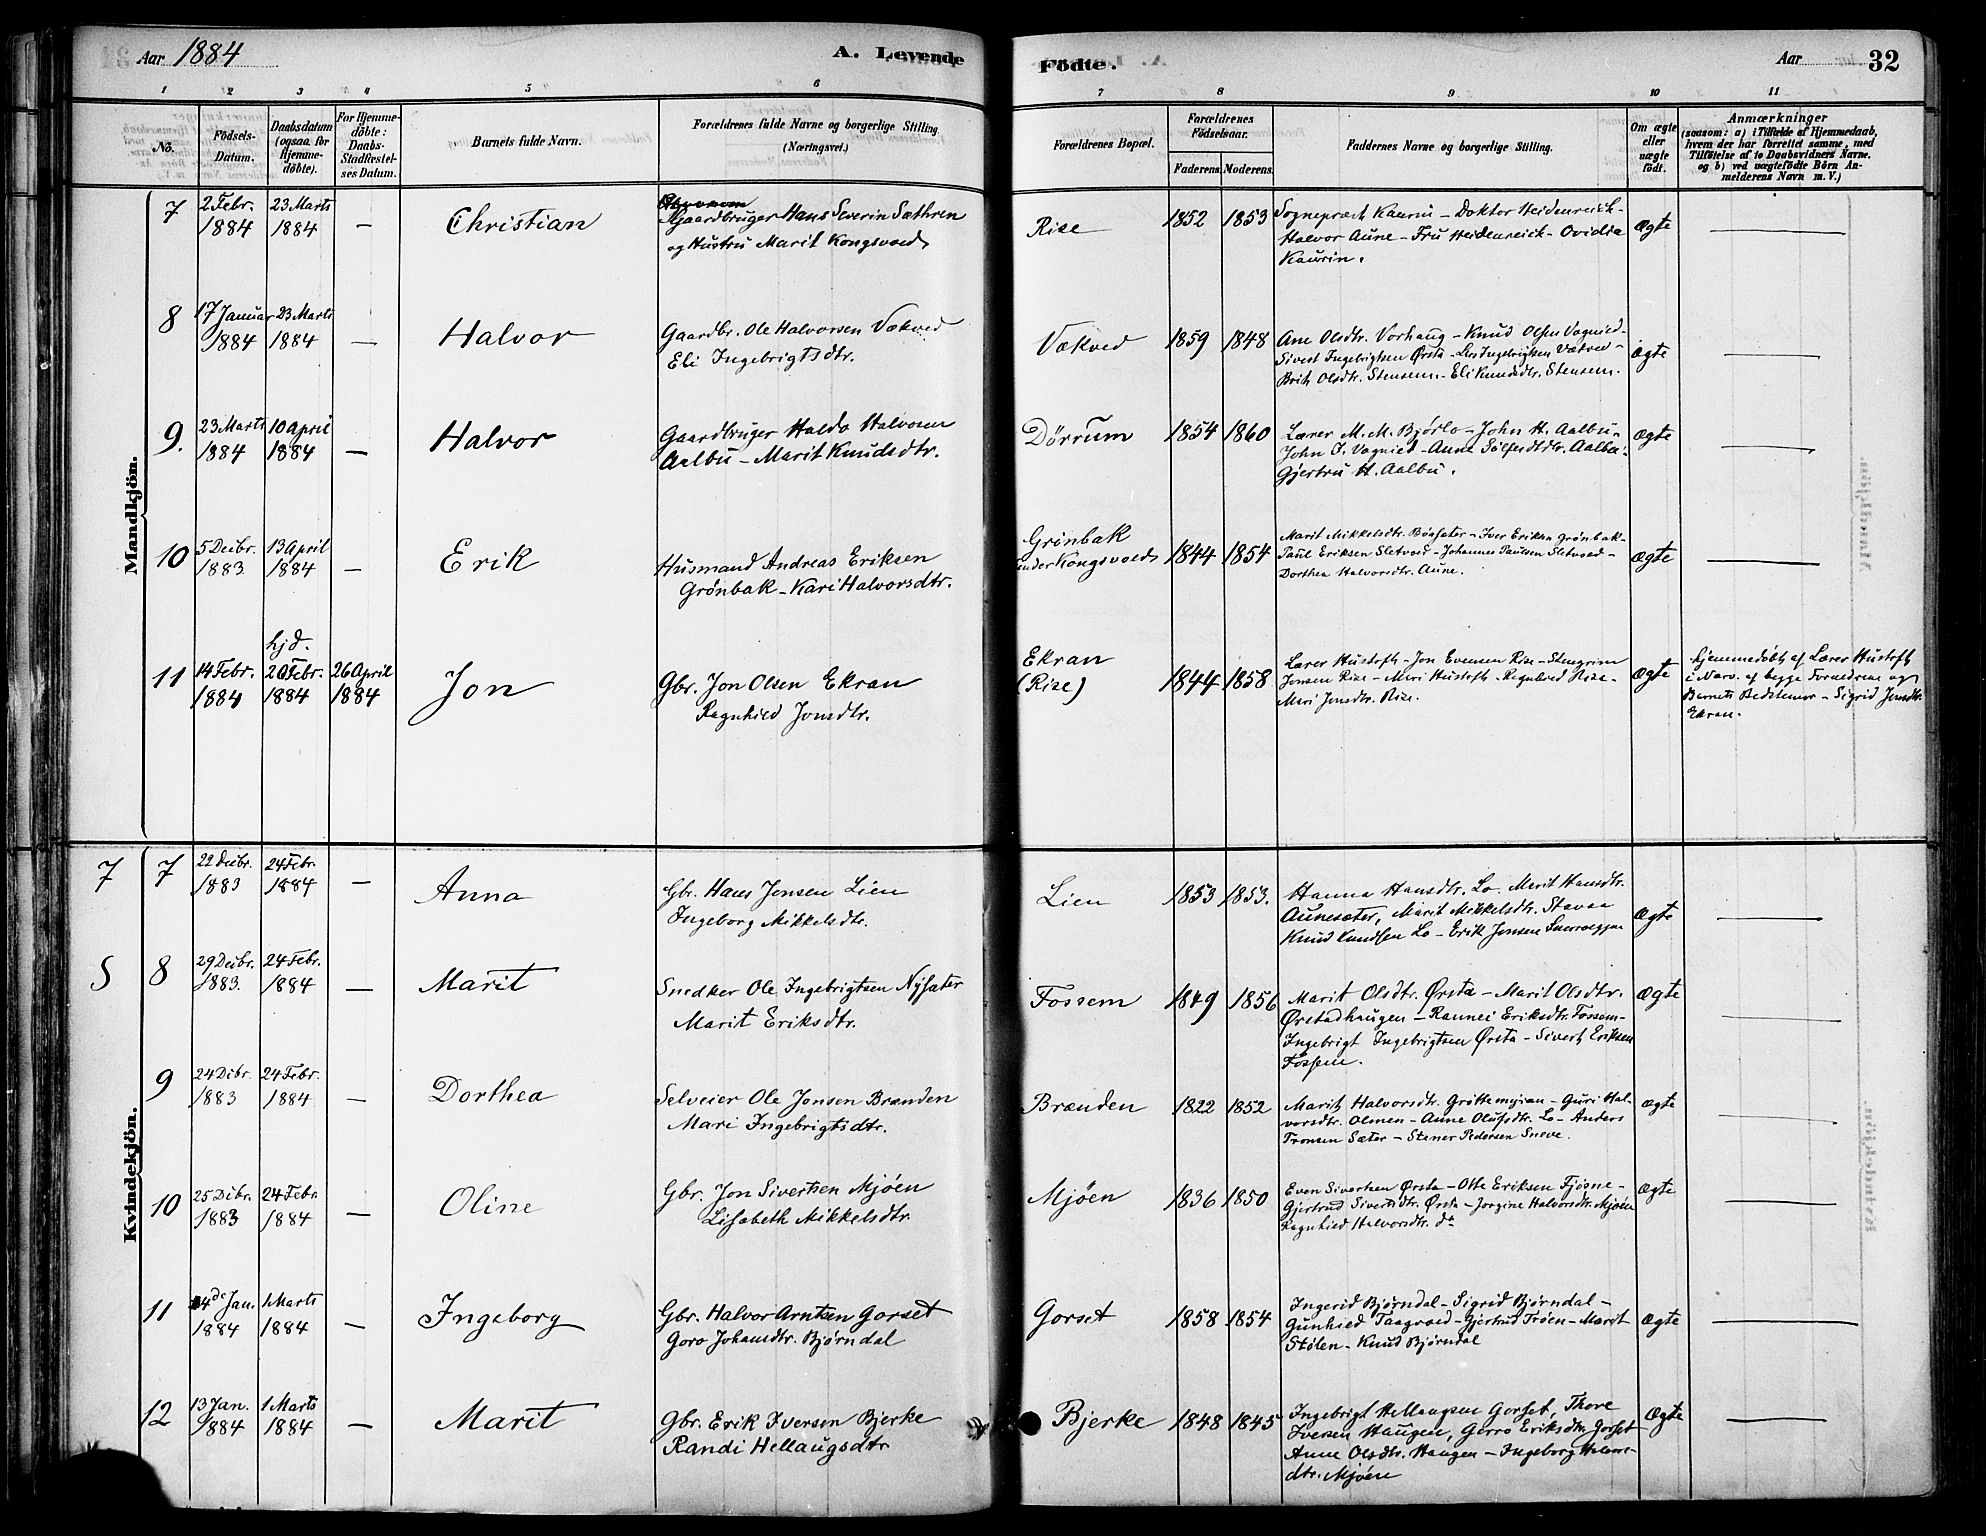 Aar 1884
A. Levende
Födte.
Aar
32
1 2 3 4 5 6 7 8 9 10 11
No.
Födsels-Datum.
Daabsdatum (ogsaa for Hjemmedöbte).
For Hjemmedöbte: Daabs-Stadfæstelses Datum.
Barnets fulde Navn.
Forældrenes fulde Navne og borgerlige Stilling. (Næringsvei.)
Forældrenes Bopæl.
Forældrenes Födselsaar.
Faderens. Moderens.
Faddernes Navne og borgerlige Stilling.
Om ægte eller uægte födt.
Anmærkninger
(saasom: a) i Tilfælde af Hjemmedaab, hvem der har forrettet samme, med Tilföielse af to Daabsvidners Navne, og b) ved uægtefödte Börn Anmelderens Navn m. V.)
Mandkjön.
7
2 Febr. 1884
23 Marts 1884
—
Christian
Gaardbruger Hans Severin Sathren
og Hustru Marit Kongsvold
Rise
1852 1853
Sogneprest Kaurin – Doktor Heidenreich –
Halvor Aune – Fru Heidenreich – Ovidia
Kaurin.
Ægte
8
17 Januar 1884
23 Marts 1884
—
Halvor
Gaardbr. Ole Halvorsen Vækved
Eli Ingebrigtsdtr.
Vækved
1859 1848
Ane Olsdtr. Vorhaug – Knud Olsen Vognied –
Sivert Ingebrigtsen Ørsta – Lars Ingebrigtsen Vækved –
Brit Olsdtr. Stensem – Eli Knudsdtr. Stensem.
ægte
9.
23 Marts 1884
10 April 1884
—
Halvor
Gaardbruger Haldo Halvorsen
Aalbu – Marit Knudsdtr.
Dörrum
1854 1860
Lærer M. M. Bjørlo – John H. Aalbu –
John I. Vognied – Anne Sölfestdtr. Aalbu –
Gjertru H. Aalbu.
Ægte
10
5 Decbr. 1883
13 April 1884
—
Erik
Husmand Andreas Eriksen
Grönbak – Kari Halvorsdtr.
Grönbak
under Kongsvold
1844 1854
Marit Mikkelsdtr. Böasæter – Iver Eriksen Grönbak –
Paul Eriksen Sletvold – Johannes Paulsen Sletvold –
Dorthea Halvorsdtr. Aune.
Ægte
11
14 Febr. 1884
hjd.
20 Febr. 1884
26 April 1884
Jon
Gbr. Jon Olsen Ekran
Ragnhild Jonsdtr.
Ekran
(Rise)
1844 1858
Lærer Hustoft – Jon Evensen Rise – Stengrim
Jonsen Rise – Meri Hustoft – Ragnhild Rise –
Meri Jonsdtr. Rise.
Ægte
Hjemmedöbt af Lærer Hustoft
i Nærv. af begge Forældrene og
Barnets Bedstemor – Sigrid Jonsdtr.
Ekran.
Kvindekjön.
7 7
22 Decbr. 1883
24 Febr. 1884
—
Anna
Gbr. Hans Jonsen Lien
Ingeborg Mikkelsdtr.
Lien
1853 1853.
Hanna Hansdtr. Lo. Marit Hansdtr.
Aunesæter, Marit Mikkelsdtr. Stavaa
Knud Knudsen Lo – Erik Jonsen
Ægte
5 8
29 Decbr. 1883.
24 Febr. 1884
—
Marit
Snedker Ole Ingebrigtsen Nysæter
Marit Eriksdtr.
Fossem
1849 1856
Marit Olsdtr. Ørsta – Marit Olsdtr.
Ørstadhaugen – Rannei Eriksdtr. Fossem –
Ingebrigt Ingebrigtsen Ørsta – Sivert Eriksen
Fossem.
Ægte
9
24 Dcbr. 1883
24 Febr. 1884
—
Dorthea
Selveier Ole Jonsen Brænden
Mari Ingebrigtsdtr.
Brænden
1822 1852
Marit Halvorsdtr. Gröttemyran – Guri Hal-
vorsdtr. Olmen – Anne Olufsdtr. Lo – Anders
Tronsen Sæter – Stener Pedersen Sneve.
Ægte
10
25 Dcbr. 1883
24 Febr. 1884
—
Oline
Gbr. Jon Sivertsen Mjöen
Lisabeth Mikkelsdtr.
Mjöen
1836 1850
Even Sivertsen Ørsta – Otte Eriksen Fjösne –
Gjertrud Sivertsdtr. Ørsta – Jorgine Halvorsdtr. Mjöen
Ragnhild Halvorsdtr. do
Ægte
11
4de Jan. 1884
1 Marts 1884
—
Ingeborg
Gbr. Halvor Arntsen Gorset
Goro Johansdtr. Björndal
Gorset
1858 1854
Ingerid Björndal – Sigrid Björndal –
Gunhild Taagvold – Gjertrud Tröen – Marit
Stölen – Knud Björndal
Ægte
12
13 Jan. 1884
1 Marts 1884
—
Marit
Gbr. Erik Iversen Bjerke
Randi Hellaugsdtr
Bjerke
1848 1845
Ingebrigt Hellaugsen Gorset, Thore
Iversen Haugen, Gorro Eriksdtr. Gorset
Anne Olsdtr. Haugen – Ingeborg Halvors-
dtr. Mjöen
Ægte